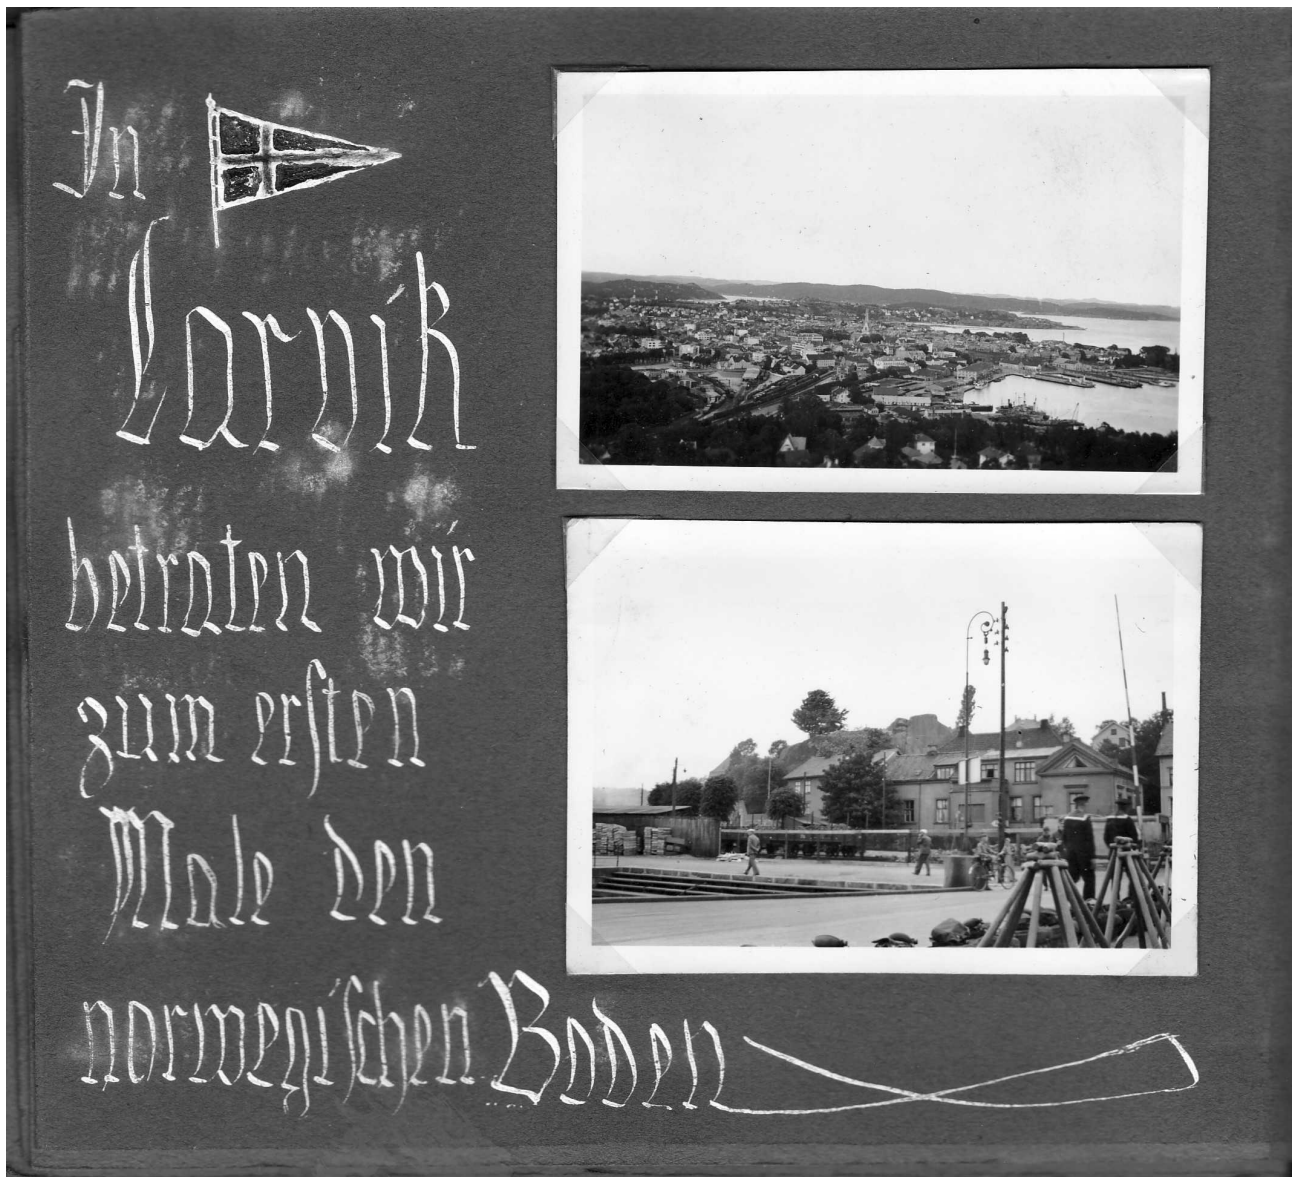 In
Larvik
betraten wir
zum erſten
Male den
norwegiſchen Boden